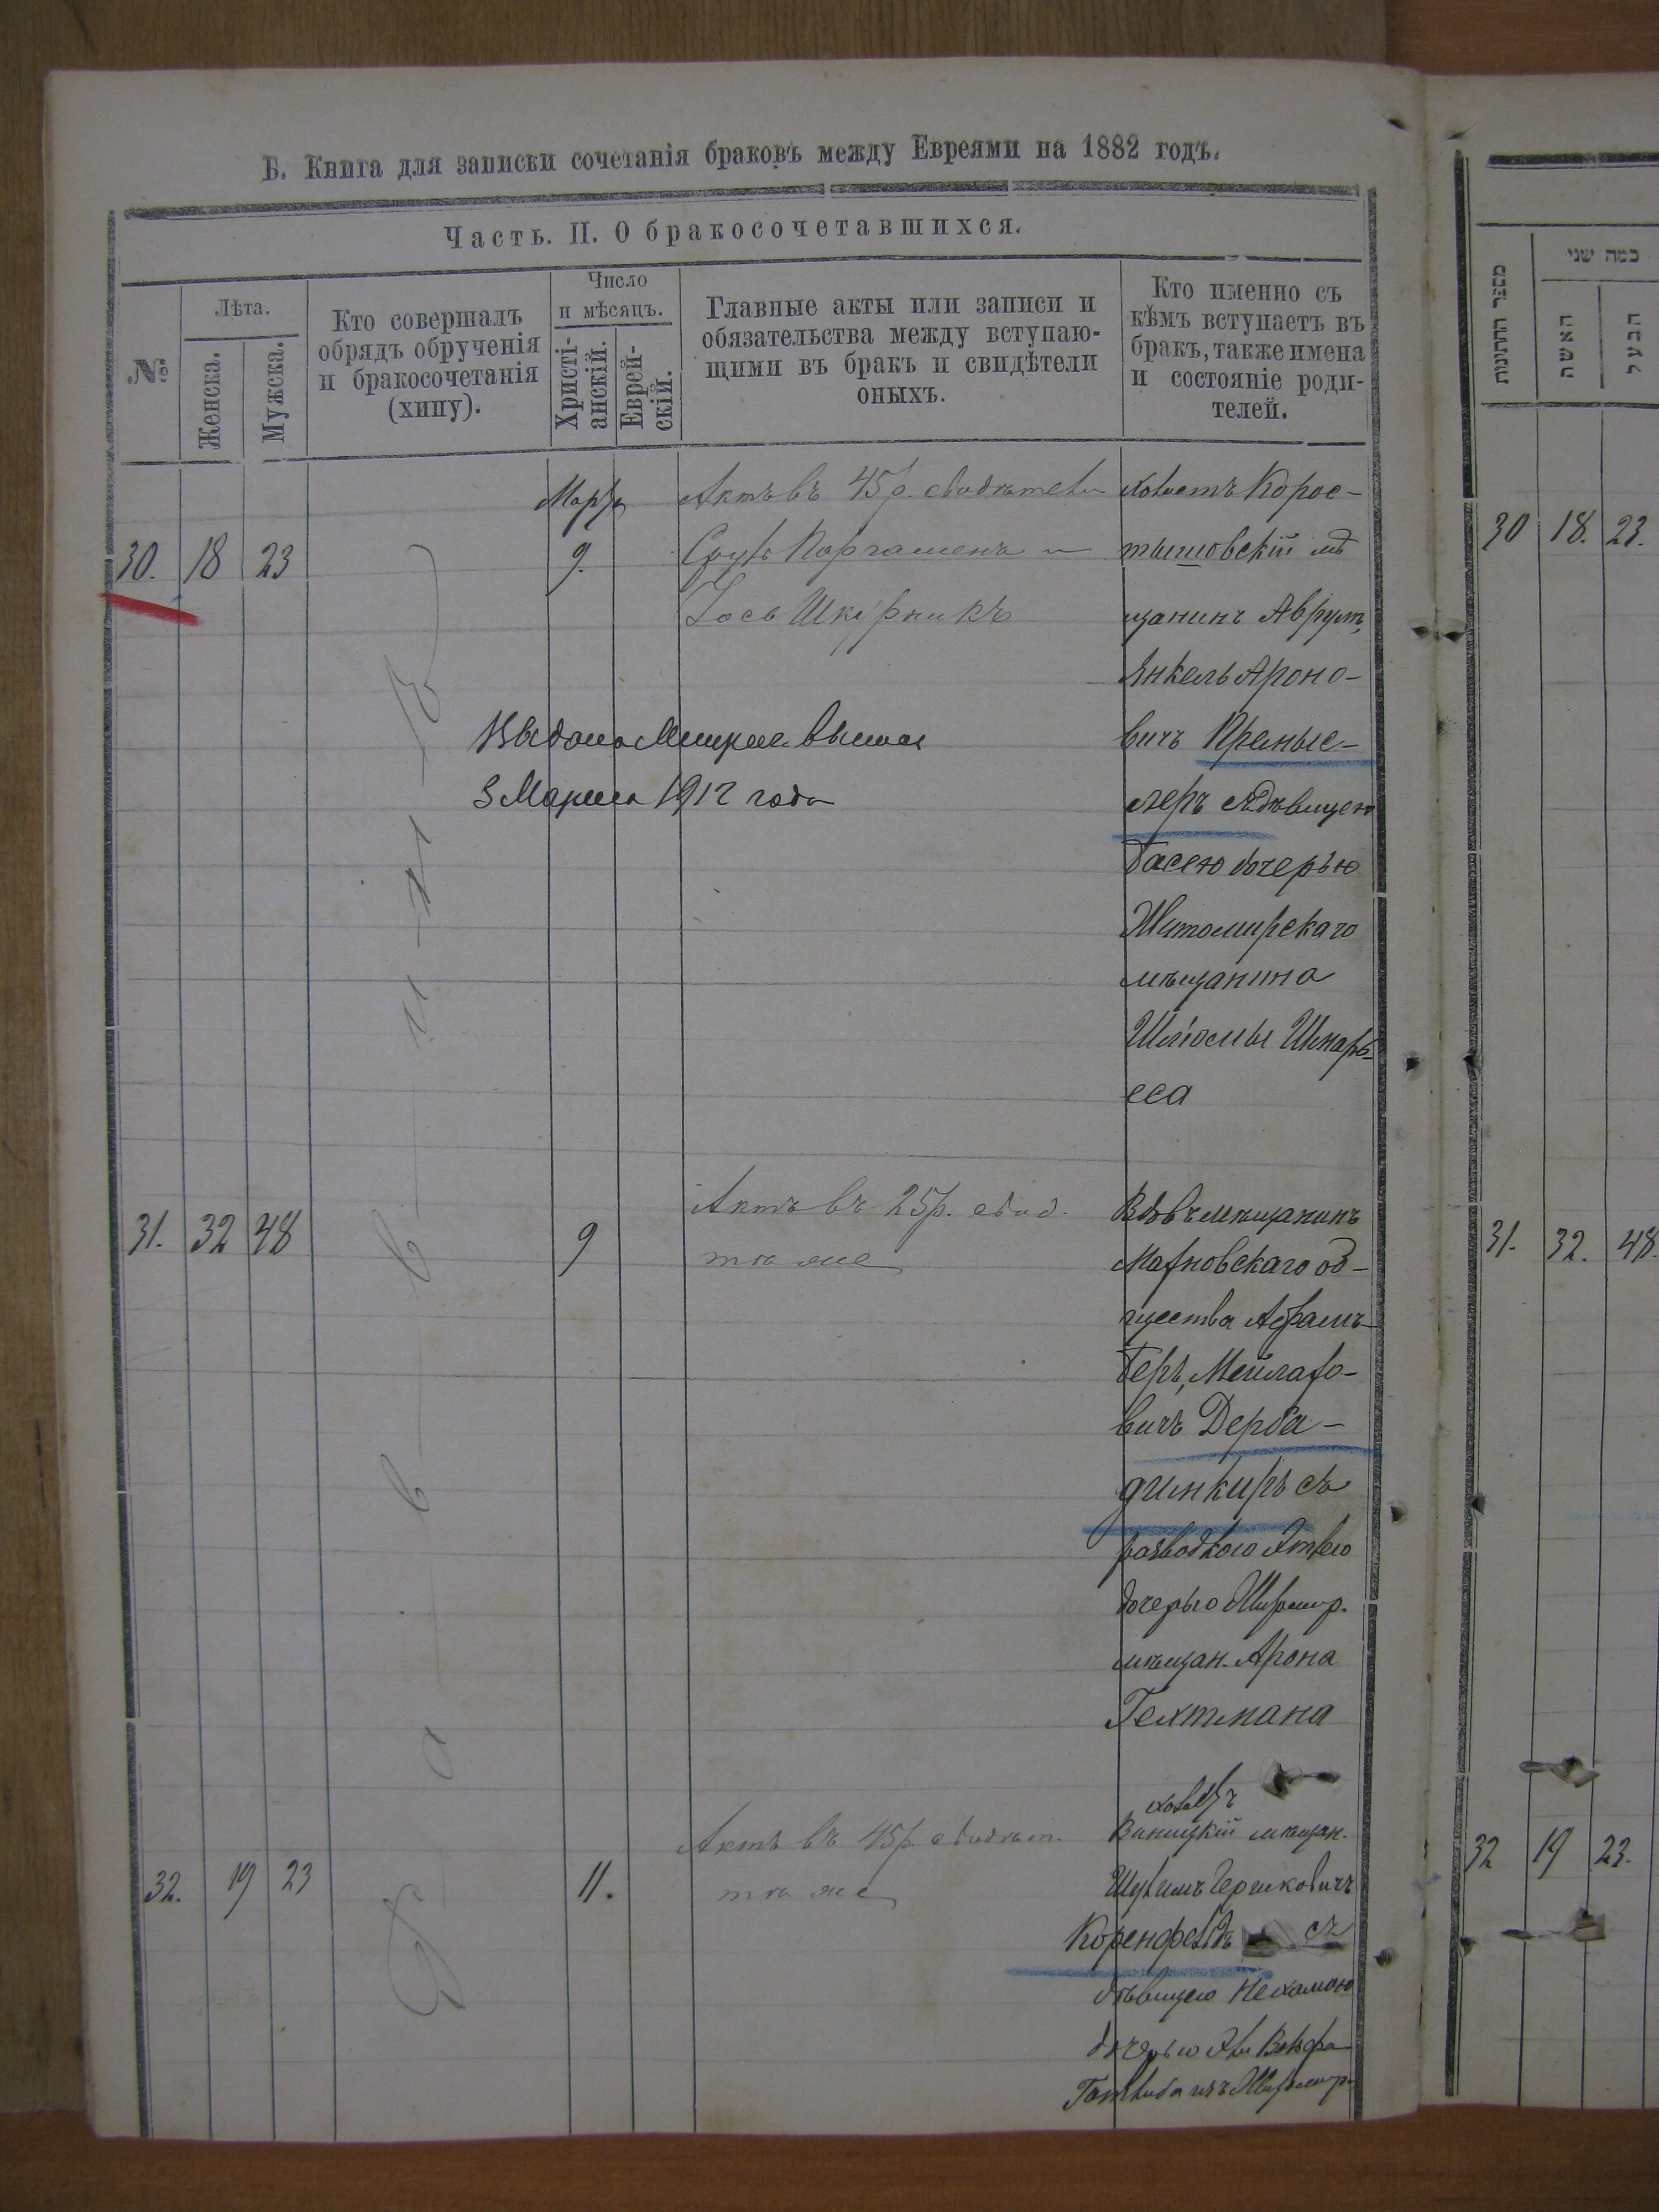 Б. Книга для записки сочетанія браковъ между Евреями на 1882 годъ.
Часть. II. О бракосочетавшихся.
№
Лѣта.
Женска.
Мужска.
Кто совершалъ
обрядъ обрученія
и бракосочетанія
(хипу).
Число
и мѣсяцъ.
Христі-
анскій.
Еврей-
скій.
Главные акты или записи и
обязательства между вступаю-
щими въ бракъ и свидѣтели
оныхъ.
Кто именно съ
кѣмъ вступаетъ въ
бракъ, также имена
и состояніе роди-
телей.
Марта
30. 18 23
9.
Актъ въ 45 р. свидѣтели
Сруль Паргаменъ и
Іось Шкурникъ
Холостъ Корос-
тышовскій мѣ
щанинъ Аврумъ
Янкель Ароно-
вичъ Премыс-
леръ съ дѣвицею
Басею дочерью
Житомирскаго
мѣщанина
Шліомы Шкарб-
еса
Выдана Метрич. выпись
3 Марта 1912 года
31. 32 48
9
Актъ въ 25 р. свид.
тѣ же
Вдовъ мѣщанинъ
Махновскаго об-
щества Абрамъ-
Беръ Мейлахо-
вичъ Дерба-
съ
разводкою
дочерью Житомир.
мѣщан. Арона
Гехтмана
32. 19 23
11.
Актъ въ 45 р. свидѣт.
тѣ же
холостъ
мѣщан.
Шулимъ Гершковичъ
Коренфельдъ съ
дѣвицею Нехамою
дочерью Эли Вольфа
изъ Житомир.
מספר החתונות
כמה שני
האשה
הבעל
30 18. 23.
31. 32. 48.
32 19 23.